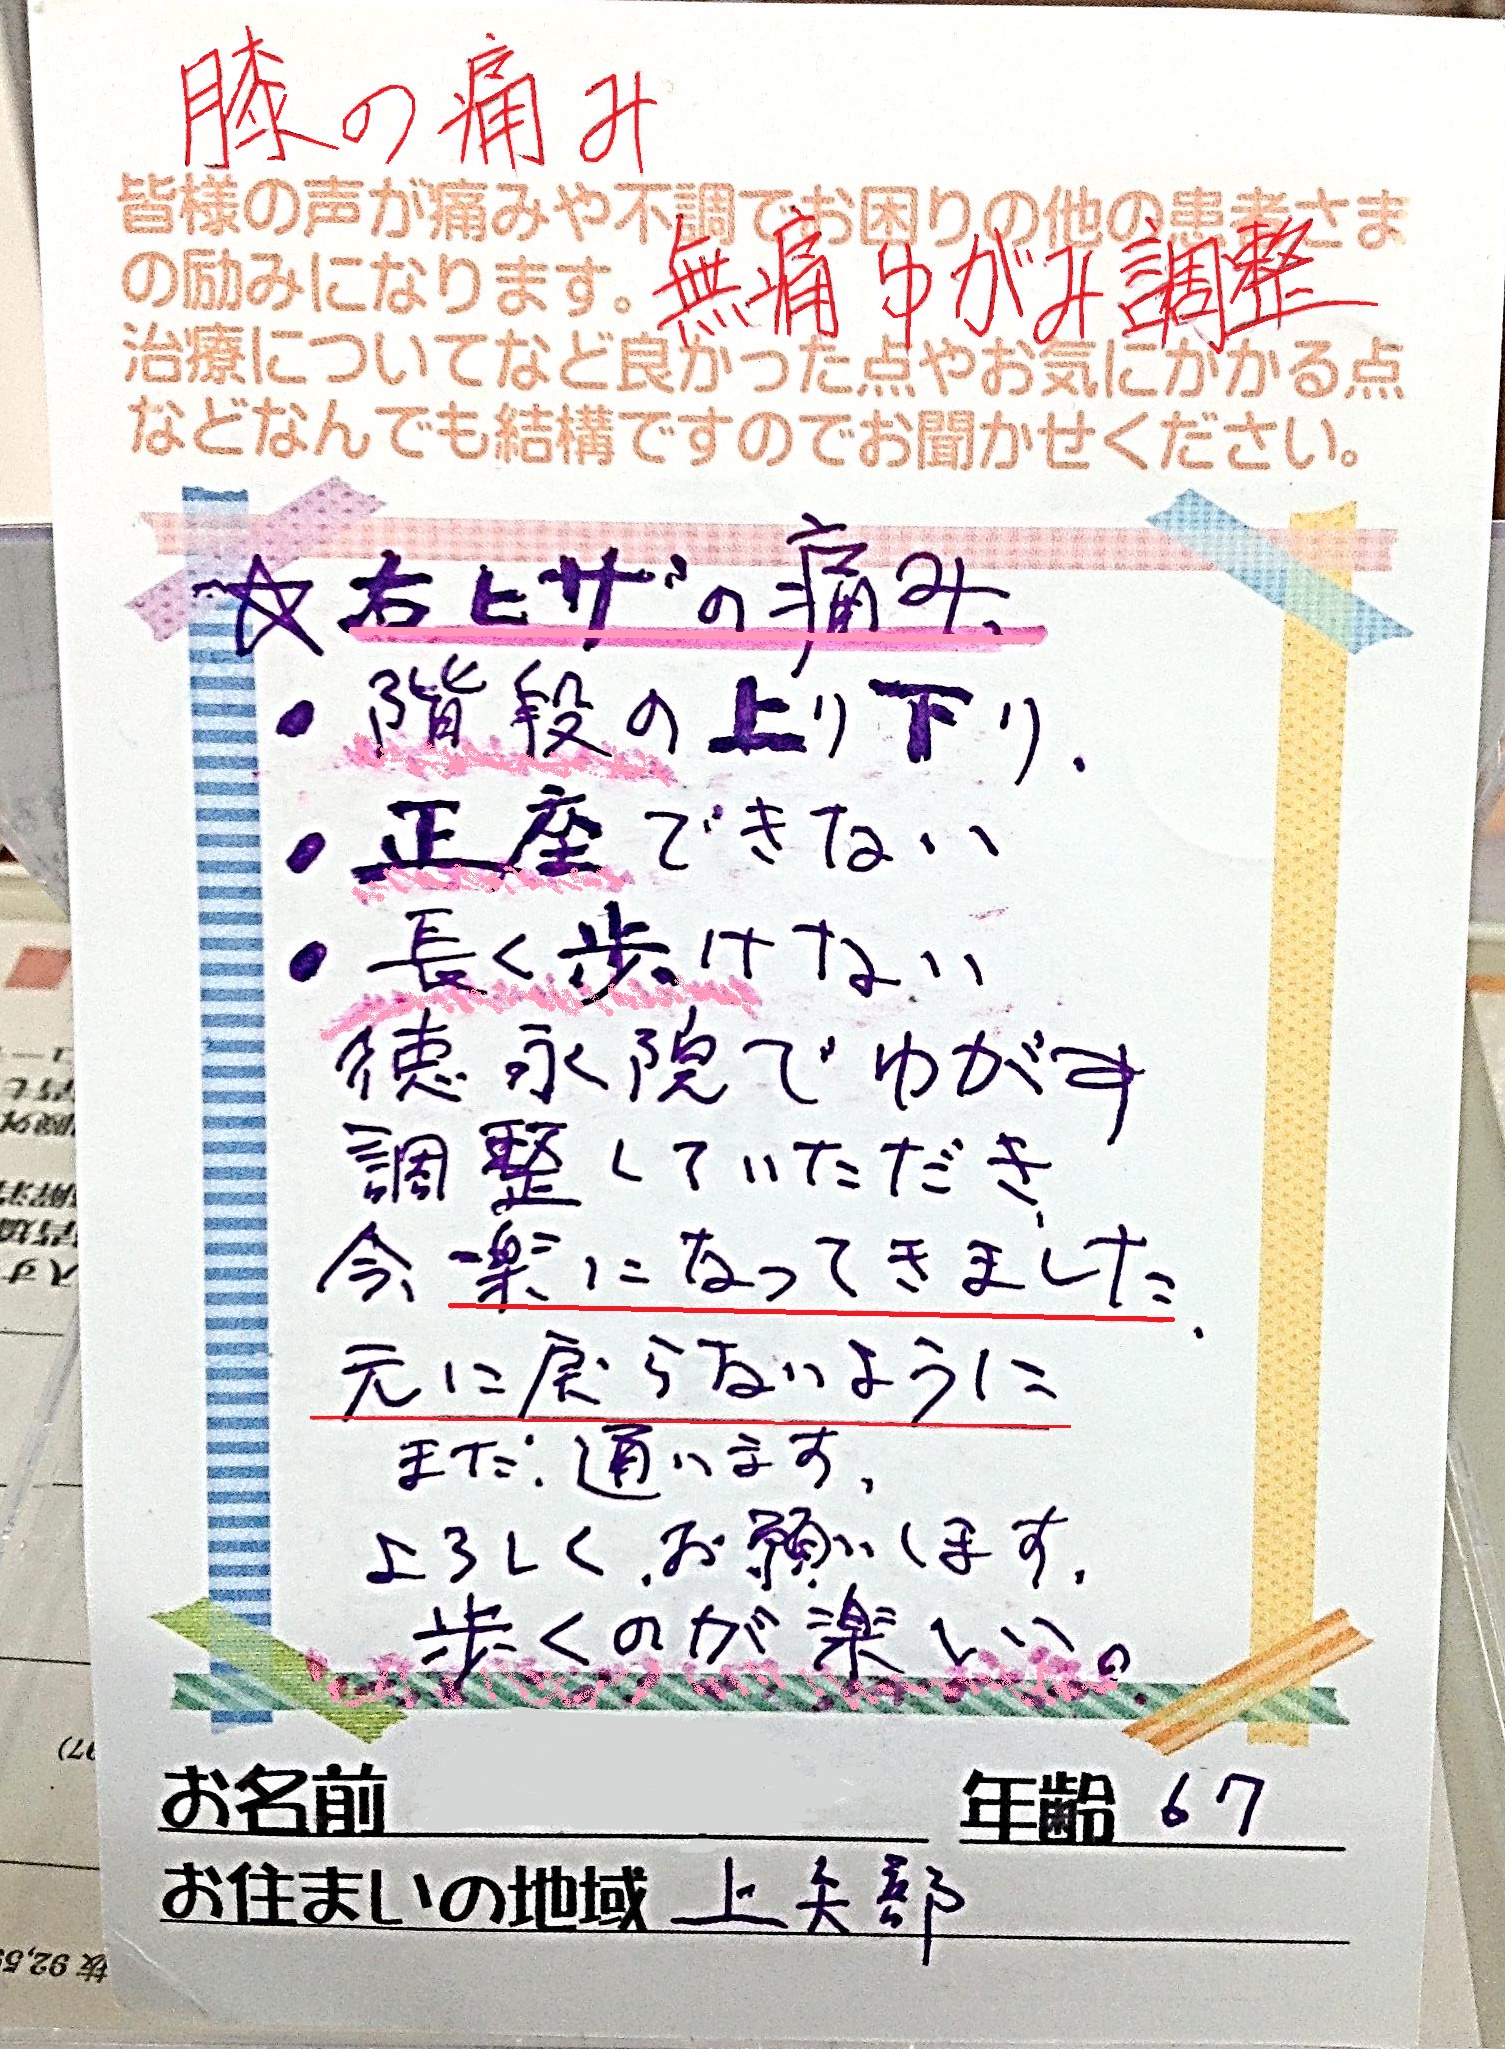 膝の痛み
皆様の声が痛みや不調でお困りの他の患者さま
の励みになります。
無痛ゆがみ調整
治療についてなど良かった点やお気にかかる点
などなんでも結構ですのでお聞かせください。
☆右ヒザの痛み、
・階段の上り下り.
・正座できない
・長く歩けない
徳永院でゆがみ
調整していただき、
今、楽になってきました.
元に戻らないように
まだ通います.
よろしくお願いします.
歩くのが楽しい。
お名前
年齢 67
お住まいの地域 上矢部